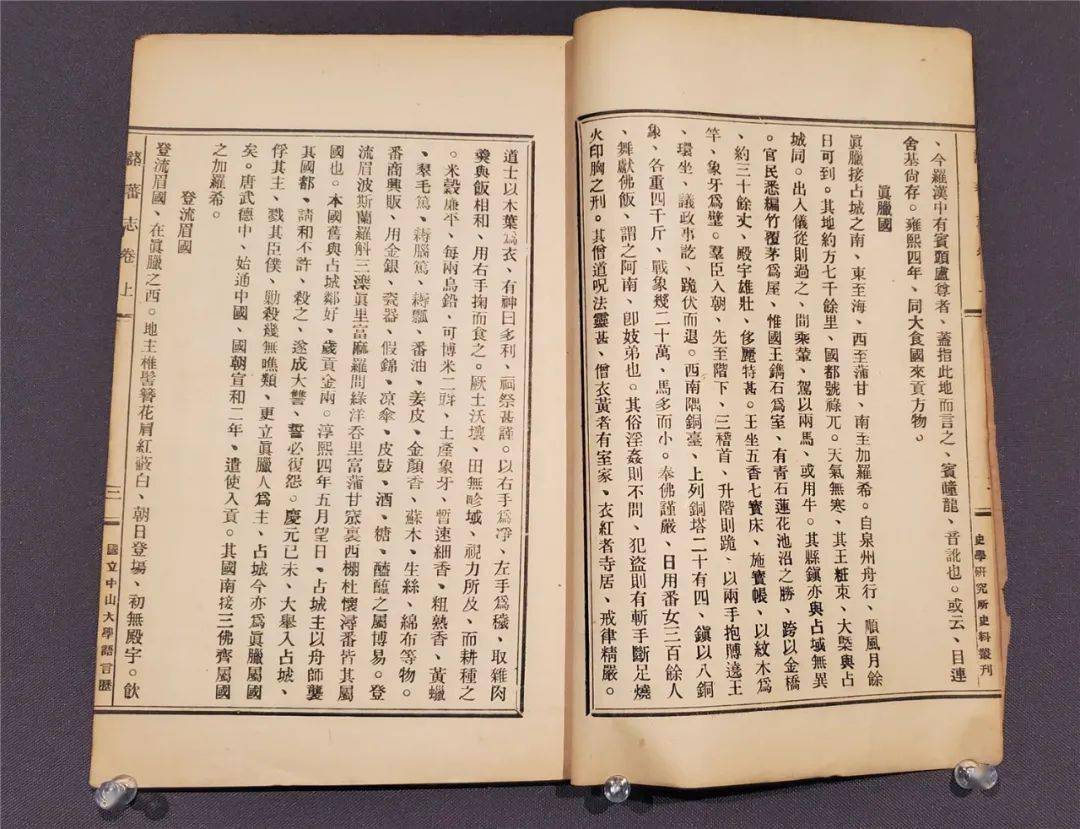 、今羅漢中有賓頭盧尊者、蓋指此地而言之、賓瞳龍、音訛也。或云、目連
舍基尙存。雍熙四年、同大食國來貢方物。
眞臘國
眞臘接占城之南、東至海、西至蒲甘、南至加羅希。自泉州舟行、順風月餘
日可到。其地約方七千餘里、國都號祿兀。天氣無寒、其王粧束、大槩與占
城同。出入儀從則過之、間乘輦、駕以兩馬、或用牛。其縣鎭亦與占城無異
。官民悉編竹覆茅爲屋、惟國王鐫石爲室、有青石蓮花池沼之勝、跨以金橋
、約三十餘丈、殿宇雄壯、侈麗特甚。王坐五香七寶床、施寶帳、以紋木爲
竿、象牙爲壁。羣臣入朝、先至階下、三稽首、升階則跪、以兩手抱膊遶王
、環坐、議政事訖、跪伏而退。西南隅銅臺、上列銅塔二十有四、鎭以八銅
象、各重四千斤、戰象幾二十萬、馬多而小。奉佛謹嚴、日用番女三百餘人
、舞獻佛飯、謂之阿南、卽妓弟也。其俗淫姦則不問、犯盜則有斬手斷足燒
火印胸之刑。其僧道呪法靈甚、僧衣黃者有室家、衣紅者寺居、戒律精嚴。
史學研究所史料叢刊
道士以木葉爲衣、有神曰多利、祠祭甚謹。以右手爲净、左手爲穢、取雜肉
羹與飯相和、用右手掬而食之。厥土沃壤、田無畛域、視力所及、而耕種之
。米穀廉平、每兩烏鉛、可博米二㪷、土產象牙、暫速細香、粗熟香、黃蠟
、翠毛篤、耨腦篤、耨瓢、番油、姜皮、金顏香、蘇木、生絲、綿布等物。
番商興販、用金銀、瓷器、假錦、凉傘、皮鼓、酒、糖、醯醢之屬博易。登
流眉波斯蘭羅斛三濼眞里富麻羅問綠洋吞里富蒲甘窊裏西棚杜懷潯番皆其屬
國也。本國舊與占城鄰好、歲貢金兩。淳熙四年五月望日、占城主以舟師襲
其國都、請和不許、殺之、遂成大讐、誓必復怨。慶元己未、大舉入占城、
俘其主、戮其臣僕、勦殺幾無噍類、更立眞臘人爲主、占城今亦爲眞臘屬國
矣。唐武德中、始通中國、國朝宣和二年、遣使入貢。其國南接三佛齊屬國
之加羅希。
登流眉國
登流眉國、在眞臘之西。地主椎髻簪花肩紅蔽白、朝日登場、初無殿宇。飮
諸蕃志卷上
三
國立中山大學語言歷